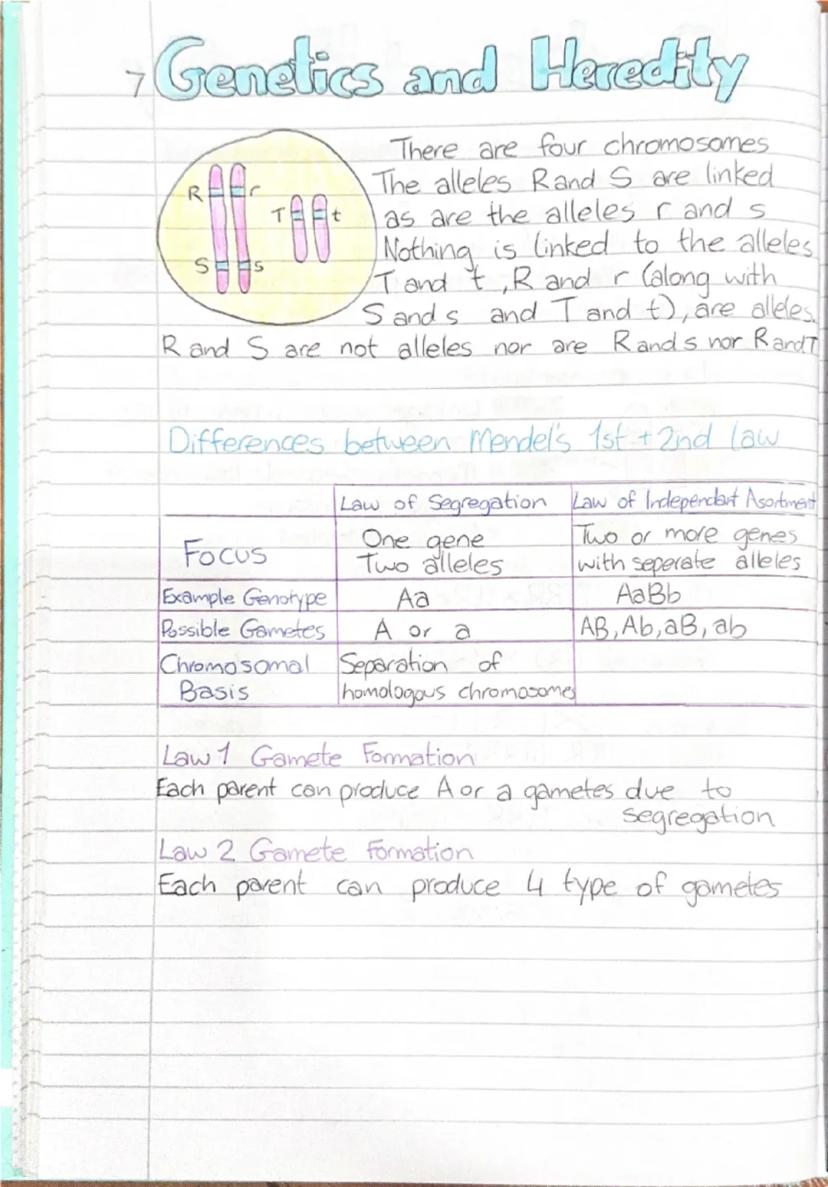 7 Genetics and Heredity
There are four chromosomes
R r
The alleles R and S are linked
T t
as are the alleles r and s
Nothing is linked to the alleles
S s
T and t, R and r (along with
S and s and T and t), are alleles.
R and S are not alleles nor are R and s nor R and T
Differences between Mendel's 1st + 2nd law
Law of Segregation Law of Independant Asortment
Focus
One gene
Two alleles
Two or more genes
with seperate alleles
Example Genotype Aa AaBb
Possible Gametes A or a AB, Ab, aB, ab
Chromosomal
Basis
Separation of
homologous chromosomes
Law 1 Gamete Formation
Each parent can produce A or a gametes due to
segregation
Law 2 Gamete Formation
Each parent can produce 4 type of gametes